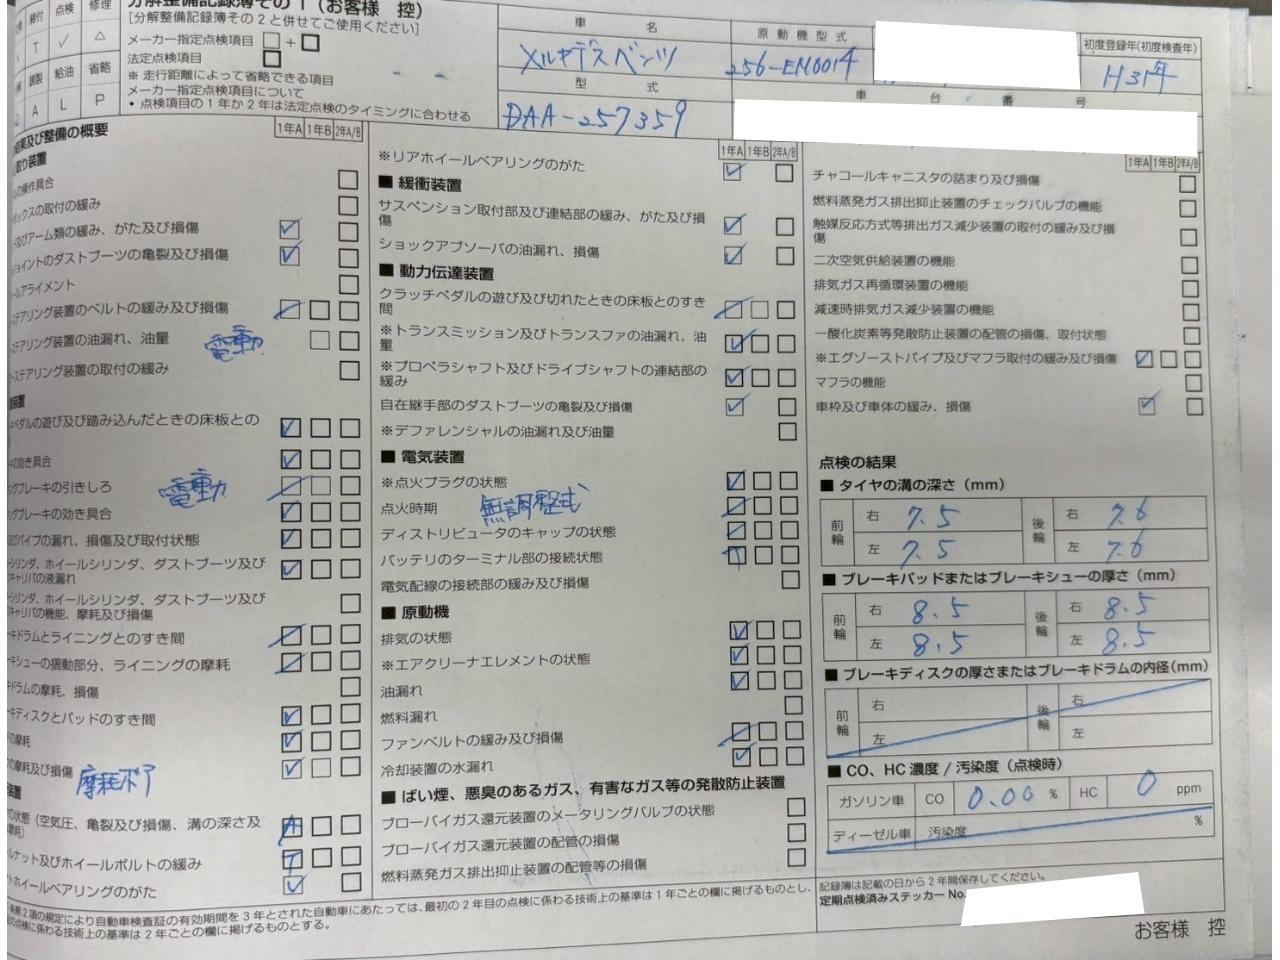 締付 点検 修理
T ✓ △
調製 給油 省略
A L P
分解整備記録簿その1(お客様 控)
[分解整備記録簿その2と併せてご使用ください]
メーカー指定点検項目 □+□
法定点検項目 □
※ 走行距離によって省略できる項目
メーカー指定点検項目について
・点検項目の1年か2年は法定点検のタイミングに合わせる
車名
メルセデスベンツ
原動機型式
256-EM0014
初度登録年(初度検査年)
H31年
型式
DAA-257359
車台番号
結果及び整備の概要
1年A 1年B 2年A/B
取り装置
の操作具合
ボックスの取付の緩み
及びアーム類の緩み、がた及び損傷
ジョイントのダストブーツの亀裂及び損傷
ールアライメント
ステアリング装置のベルトの緩み及び損傷
ステアリング装置の油漏れ、油量 電動
ーステアリング装置の取付の緩み
装置
ペダルの遊び及び踏み込んだときの床板との
の効き具合
ングブレーキの引きしろ 電動
ングブレーキの効き具合
パイプの漏れ、損傷及び取付状態
シリンダ、ホイールシリンダ、ダストブーツ及び
キャリパの液漏れ
シリンダ、ホイールシリンダ、ダストブーツ及び
キャリパの機能、摩耗及び損傷
ーキドラムとライニングとのすき間
ーキシューの摺動部分、ライニングの摩耗
キドラムの摩耗、損傷
ーキディスクとパッドのすき間
の摩耗
の摩耗及び損傷
装置
の状態(空気圧、亀裂及び損傷、溝の深さ及
摩耗) A
ルナット及びホイールボルトの緩み T
トホイールベアリングのがた
1年A 1年B 2年A/B
※リアホイールベアリングのがた
■ 緩衝装置
サスペンション取付部及び連結部の緩み、がた及び損
傷
ショックアブソーバの油漏れ、損傷
■ 動力伝達装置
クラッチペダルの遊び及び切れたときの床板とのすき
間
※トランスミッション及びトランスファの油漏れ、油
量
※プロペラシャフト及びドライブシャフトの連結部の
緩み
自在継手部のダストブーツの亀裂及び損傷
※デファレンシャルの油漏れ及び油量
■ 電気装置
※点火プラグの状態
点火時期 無調整式
ディストリビュータのキャップの状態
バッテリのターミナル部の接続状態 T
電気配線の接続部の緩み及び損傷
■ 原動機
排気の状態
※エアクリーナエレメントの状態
油漏れ
燃料漏れ
ファンベルトの緩み及び損傷
冷却装置の水漏れ
■ ばい煙、悪臭のあるガス、有害なガス等の発散防止装置
ブローバイガス還元装置のメータリングバルブの状態
ブローバイガス還元装置の配管の損傷
燃料蒸発ガス排出抑止装置の配管等の損傷
1年A 1年B 2年A/B
チャコールキャニスタの詰まり及び損傷
燃料蒸発ガス排出抑止装置のチェックバルブの機能
触媒反応方式等排出ガス減少装置の取付の緩み及び損
傷
二次空気供給装置の機能
排気ガス再循環装置の機能
減速時排気ガス減少装置の機能
一酸化炭素等発散防止装置の配管の損傷、取付状態
※エグゾーストパイプ及びマフラ取付の緩み及び損傷
マフラの機能
車枠及び車体の緩み、損傷
点検の結果
■ タイヤの溝の深さ(mm)
前輪 右 7.5 後輪 右 7.6
左 7.5 左 7.6
■ ブレーキパッドまたはブレーキシューの厚さ(mm)
前輪 右 8.5 後輪 右 8.5
左 8.5 左 8.5
■ ブレーキディスクの厚さまたはブレーキドラムの内径(mm)
前輪 右 後輪 右
左 左
■ CO、HC濃度/汚染度(点検時)
ガソリン車 CO 0.00 % HC 0 ppm
ディーゼル車 汚染度 %
条第2項の規定により自動車検査証の有効期間を3年とされた自動車にあたっては、最初の2年目の点検に係わる技術上の基準は1年ごとの欄に掲げるものとし、
の点検に係わる技術上の基準は2年ごとの欄に掲げるものとする。
記録簿は記載の日から2年間保存してください。
定期点検済みステッカー No.
お客様 控